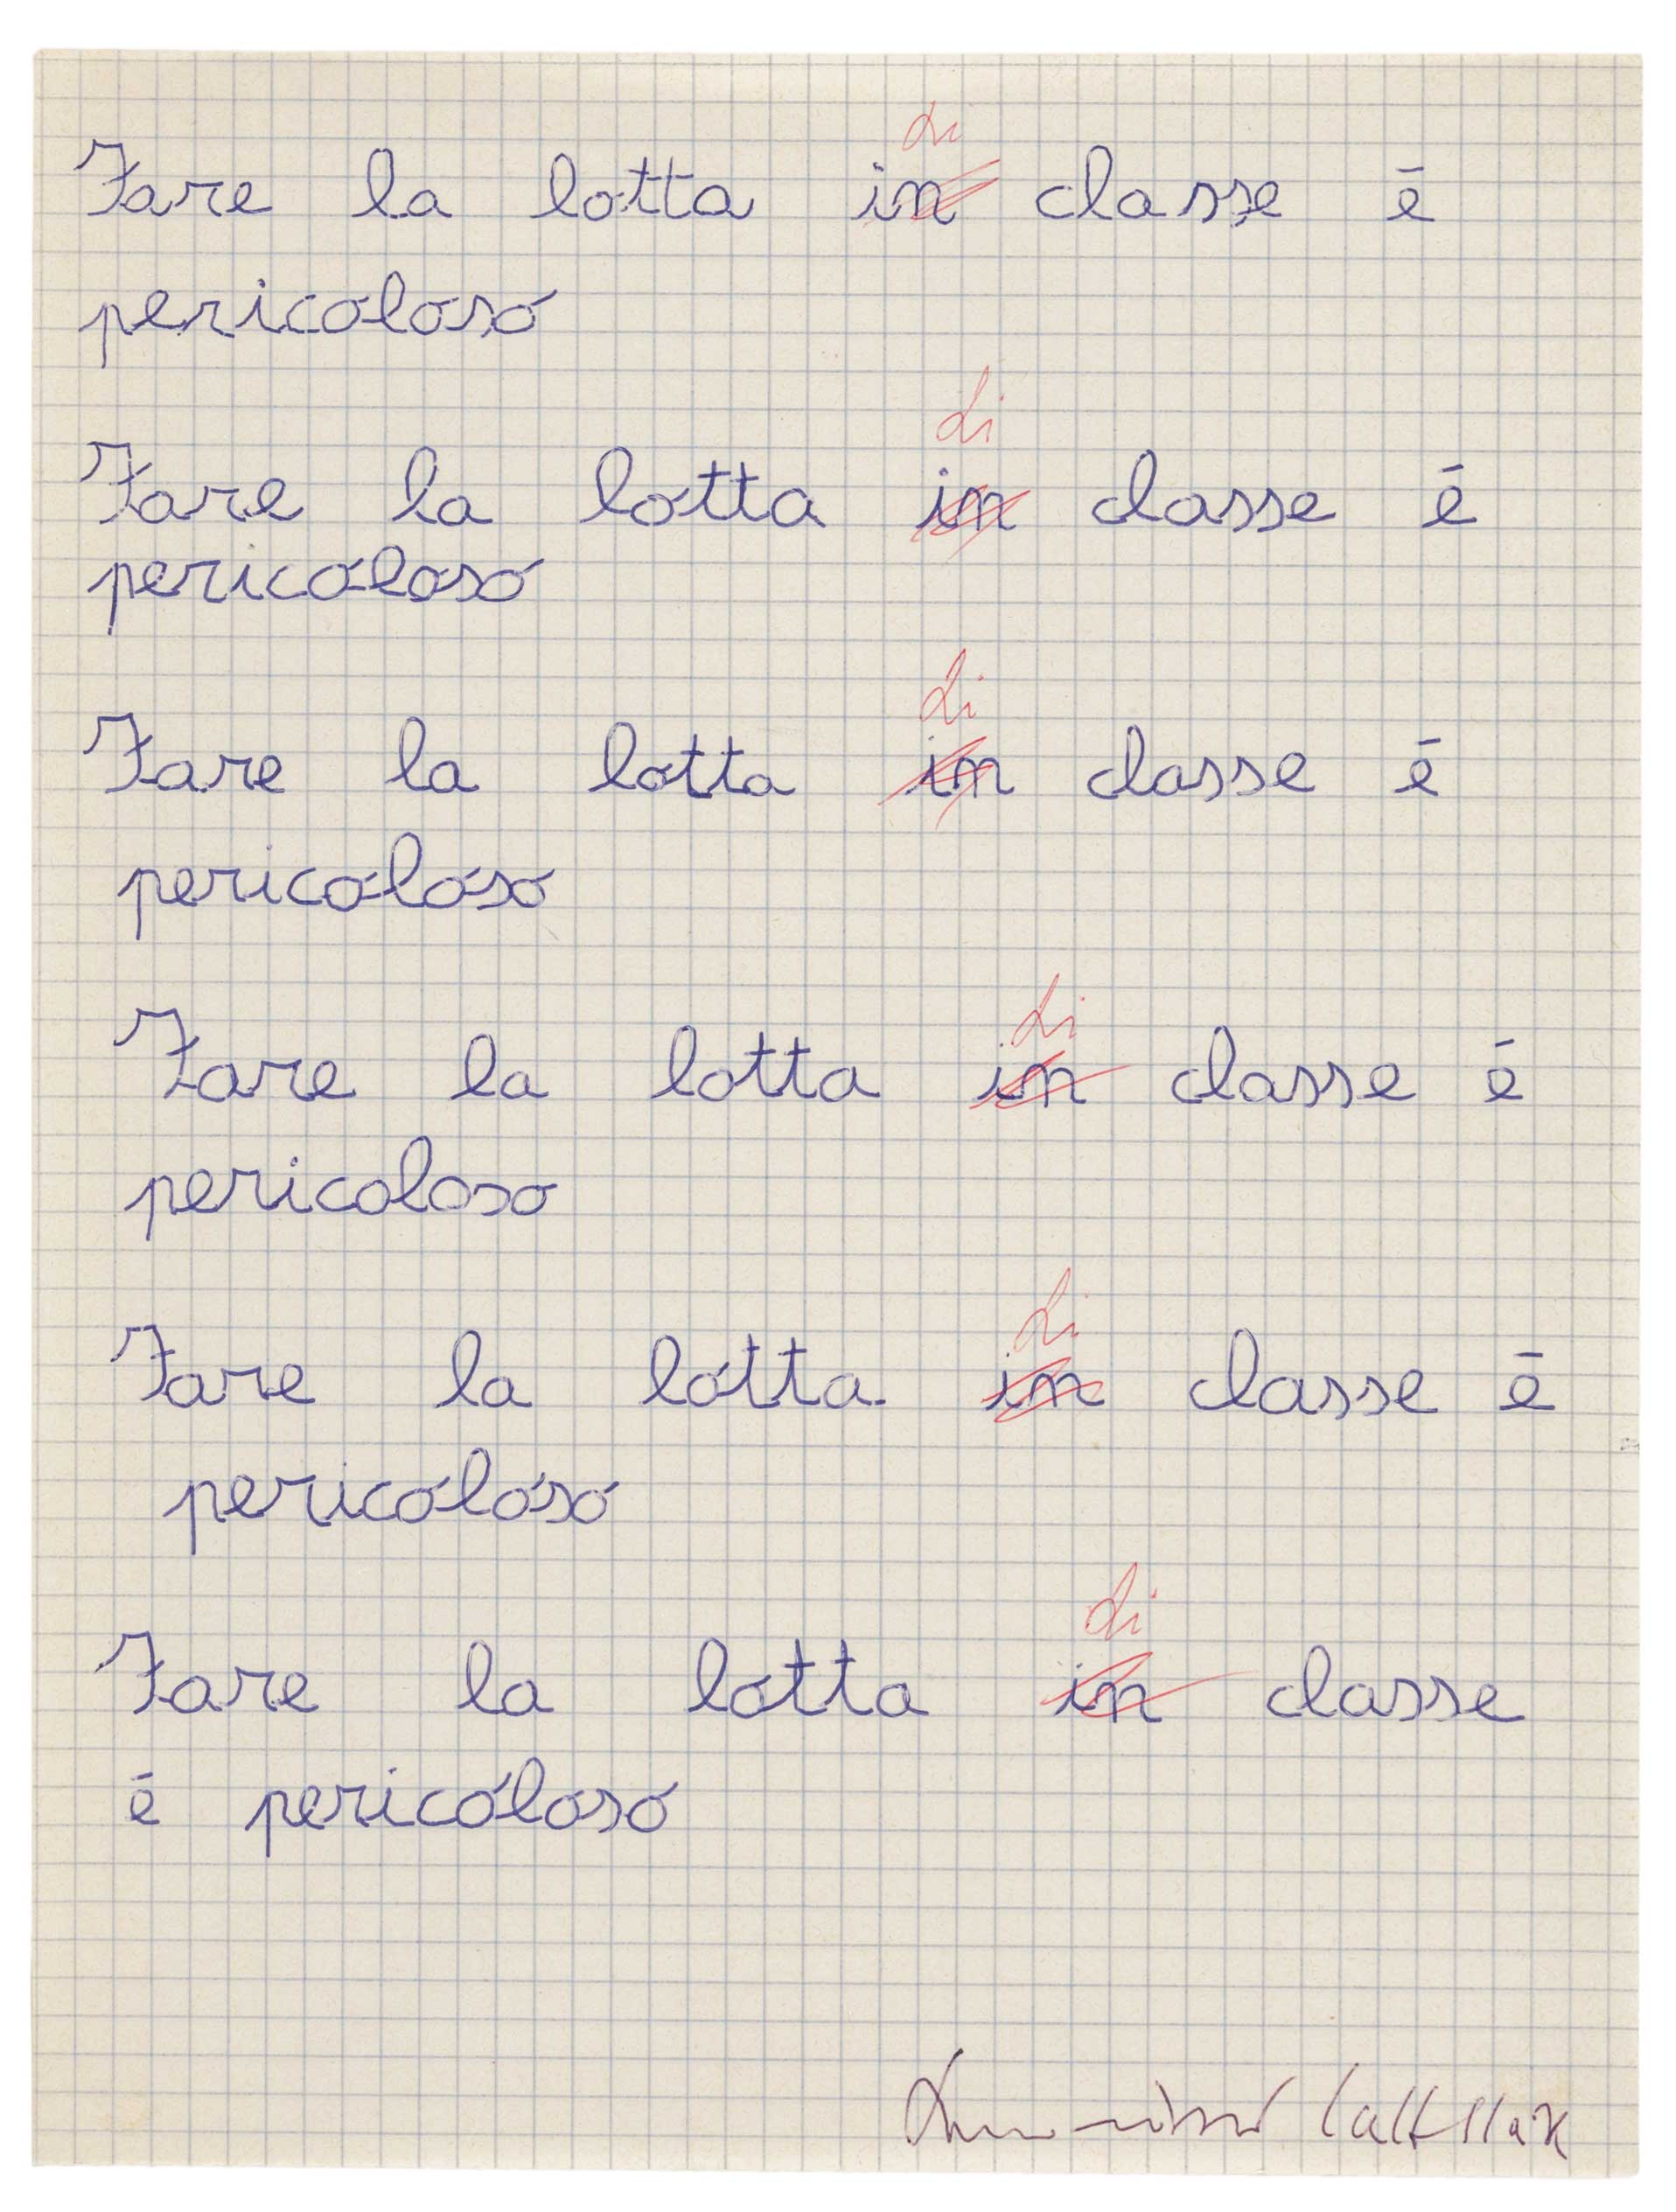 di
Fare la lotta in classe é
pericoloso
di
Fare la lotta in classe é
pericoloso
di
Fare la lotta in classe é
pericoloso
di
Fare la lotta in classe é
pericoloso
di
Fare la lotta in classe é
pericoloso
di
Fare la lotta in classe
é pericoloso